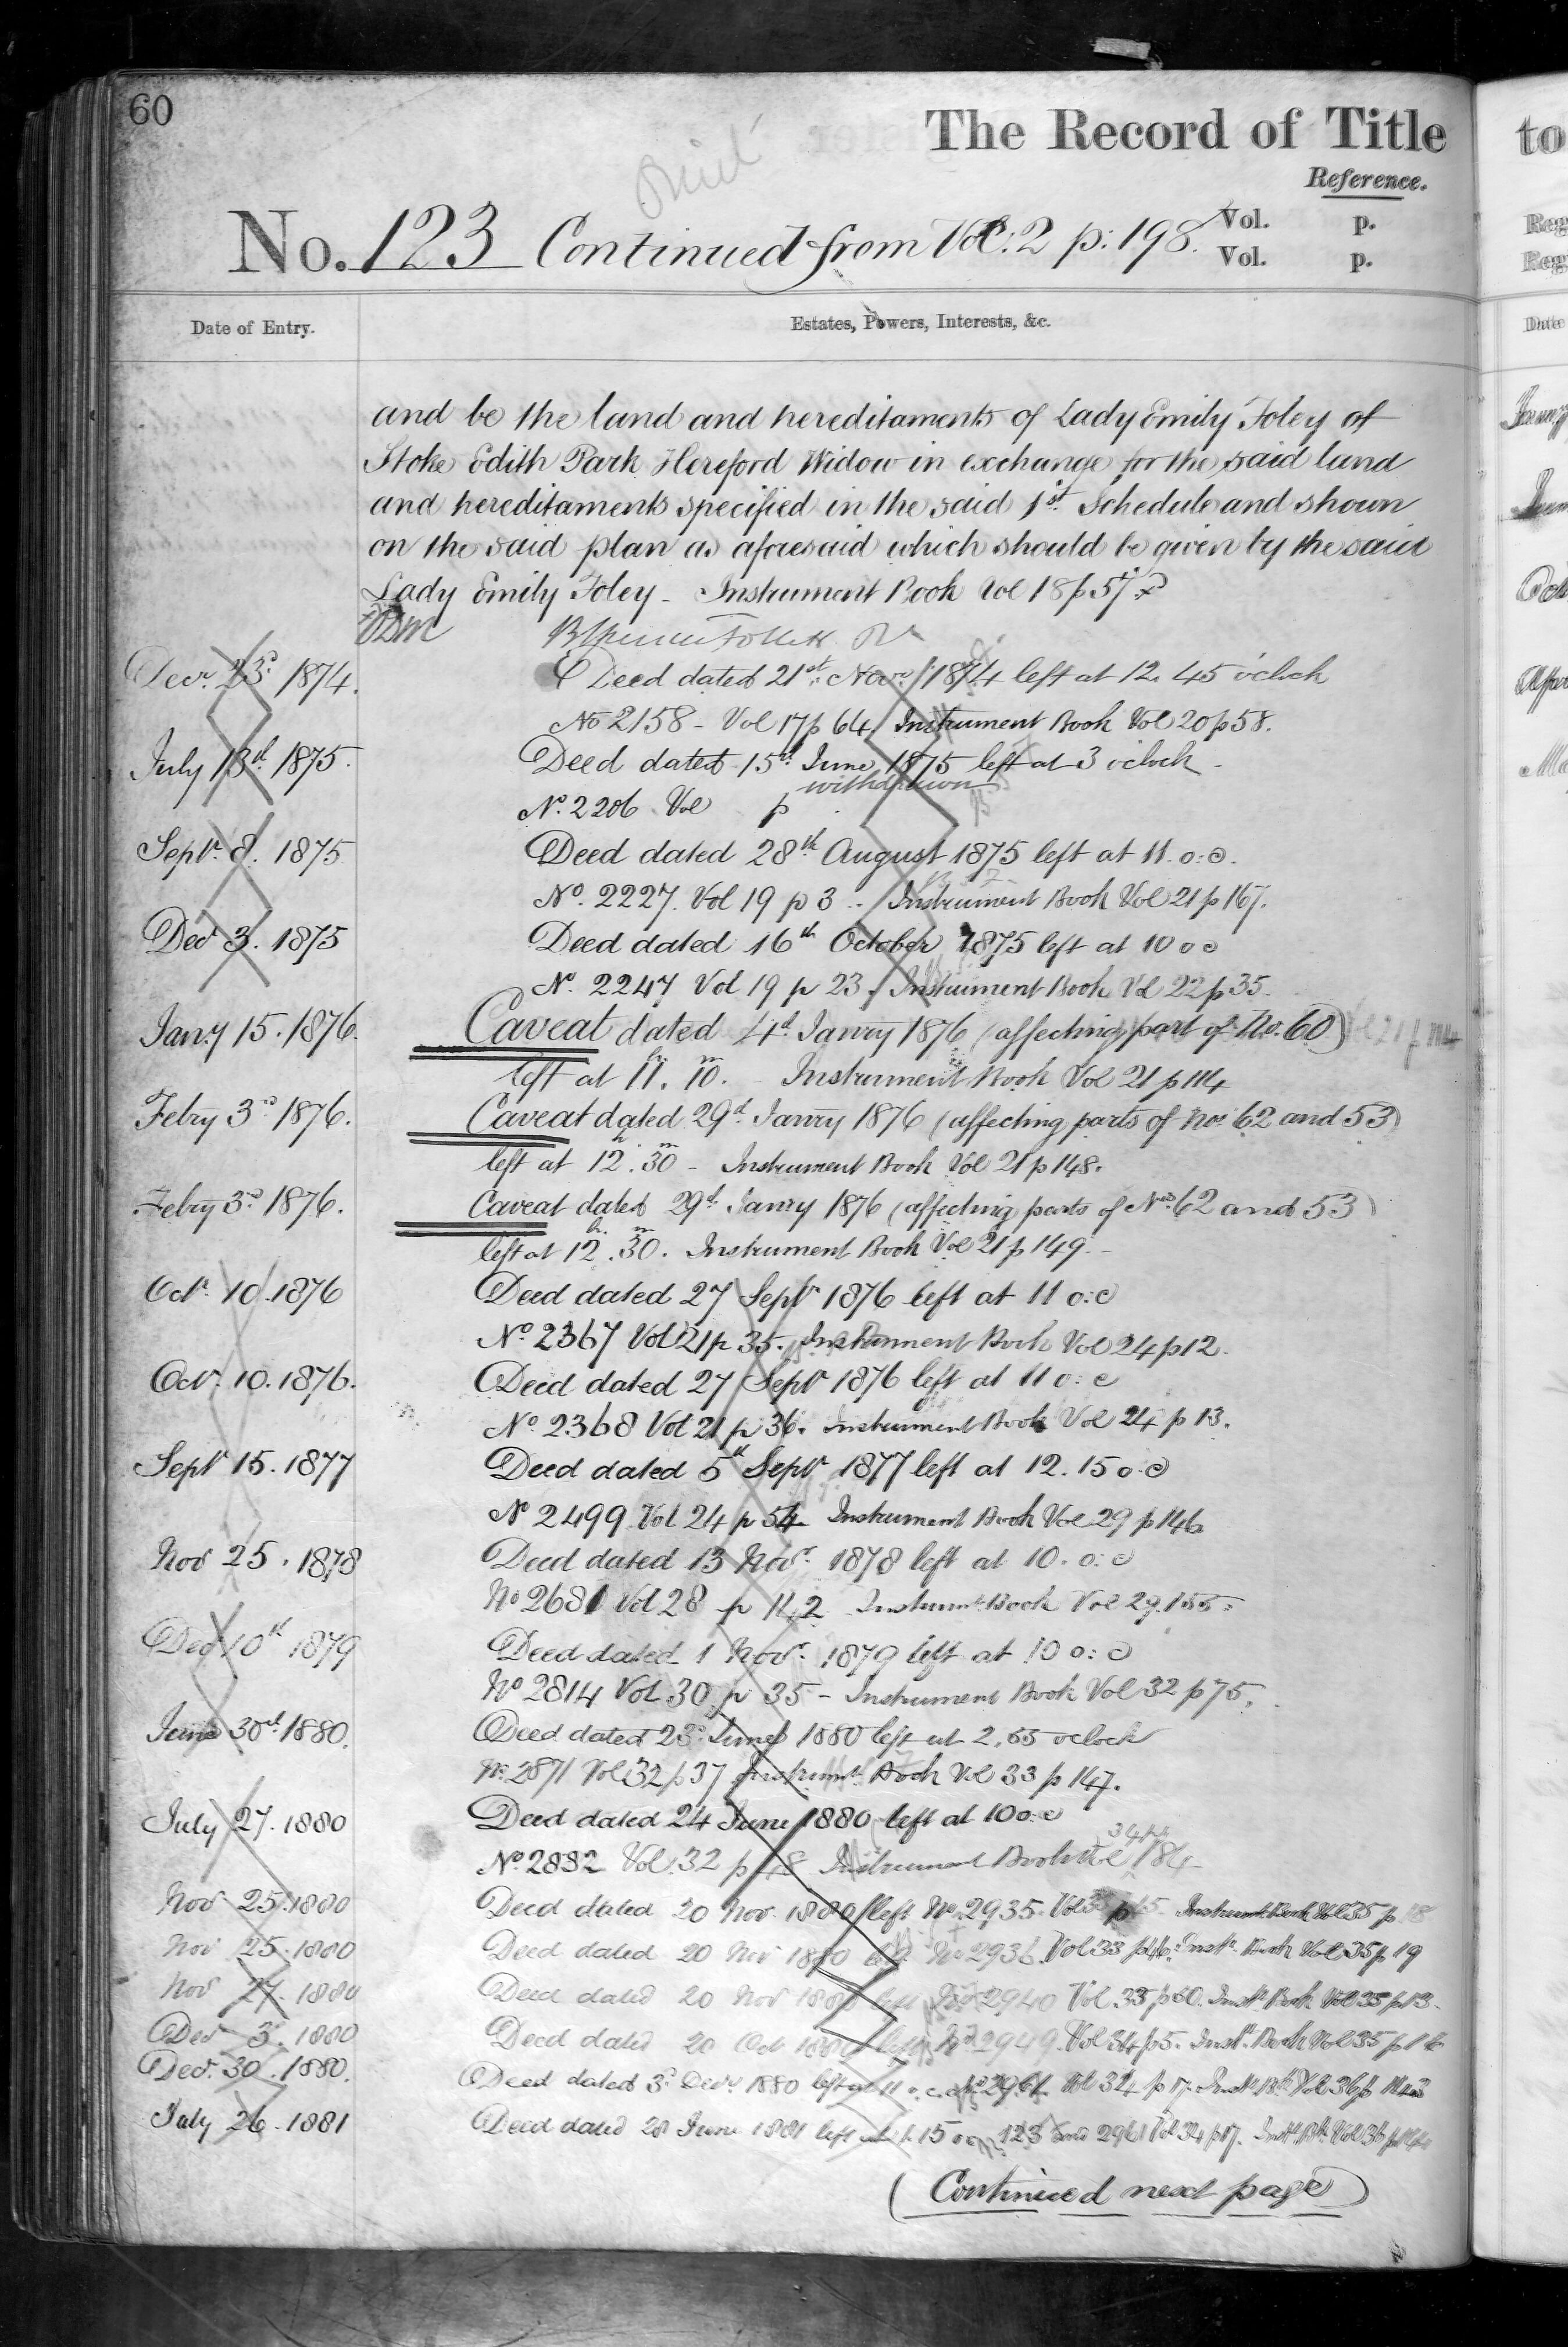 60
The Record of Title
Reference.
No. 123 Continued from Vol: 2 p: 198. Vol. p.
Vol. p.
Date of Entry. Estates, Powers, Interests, &c.
and be the land and hereditaments of Lady Emily Foley of
Stoke Edith Park Hereford Widow in exchange for the said land
and hereditaments specified in the said 1st Schedule and shown
on the said plan as aforesaid which should be given by the said
Lady Emily Foley - Instrument Book Vol 18 p 57
Decr. 23d. 1874. Deed dated 21st. Novr. 1874 left at 12. 45 o'clock
No 2158 - Vol 17 p 64. Instrument Book Vol 20 p 58.
July 13th. 1875. Deed dated 15th. June 1875 left at 3 o'clock -
withdrawn
No. 2206 Vol p
Septr. 8. 1875 Deed dated 28th August 1875 left at 11. o:c.
No. 2227. Vol 19 p 3 .. Instrument Book Vol 21 p 167.
Decr 3. 1875 Deed dated 16th October 1875 left at 10 o c
No. 2247 Vol 19 p 23. Instrument Book Vol 22 p 35.
Jany 15. 1876. Caveat dated 4th Janry 1876 (affecting part of No. 60)
left at 11h. 10m. - Instrument Book Vol 21 p 114
Febry 3rd 1876. Caveat dated 29th Janry 1876 (affecting parts of No. 62 and 53)
left at 12h. 30m - Instrument Book Vol 21 p 148.
Febry 3rd 1876. Caveat dated 29th Janry 1876 (affecting parts of Nos. 62 and 53)
left at 12h. 30m. Instrument Book Vol 21 p 149.-
Octr. 10. 1876 Deed dated 27 Septr 1876 left at 11 o:c
No. 2367 Vol 21 p 35. Instrument Book Vol 24 p 12.
Octr. 10. 1876. Deed dated 27 Septr 1876 left at 11 o:c
No. 2368 Vol 21 p 36. Instrument Book Vol 24 p 13.
Septr 15. 1877 Deed dated 5th Septr 1877 left at 12. 15 o.c
No 2499 Vol 24 p 54 Instrument Book Vol 29 p 146
Nov 25. 1878 Deed dated 13 Novr. 1878 left at 10. o:c
No 2681 Vol 28 p 142 Instrumt. Book Vol 29. 155.
Decr 10th 1879 Deed dated 1 Novr. 1879 left at 10 o:c
No 2814 Vol 30 p 35 - Instrument Book Vol 32 p 75.
June 30th. 1880. Deed dated 23d. June 1880 left at 2.55 oclock
No. 2871 Vol 32 p 37 Instrumt. Book Vol 33 p 147.
July 27. 1880 Deed dated 24 June 1880 left at 10 o:c
No. 2892 Vol. 32 p 48 Instrument Book Vol 184
Nov 25. 1880 Deed dated 20 Nov. 1880 left No. 2935. Instrument Book Vol 35 p 18
Nov 25. 1880 Deed dated 20 Nov 1880 left No 2936. Vol 33 p 46. Instt. Book Vol 35 p 19
Nov 27. 1880 Deed dated 20 Nov 1880 left No 2940 Vol. 33 p 50. Instt. Book Vol 35 p 13.
Decr 3. 1880 Deed dated 20 Oct 1880 left No 2949. Vol 34 p 5. Instt. Book Vol 35 p
Decr. 30. 1880. Deed dated 3d. Decr. 1880 left at 11 o.c. No 2961. Vol 34 p 17. Instt. Bk. Vol 36 p
July 26. 1881 Deed dated 28 June 1881 left at 1.15 123 and 2961 Vol 34 p 17. Instt. Bk. Vol 36 p
(Continued next page)